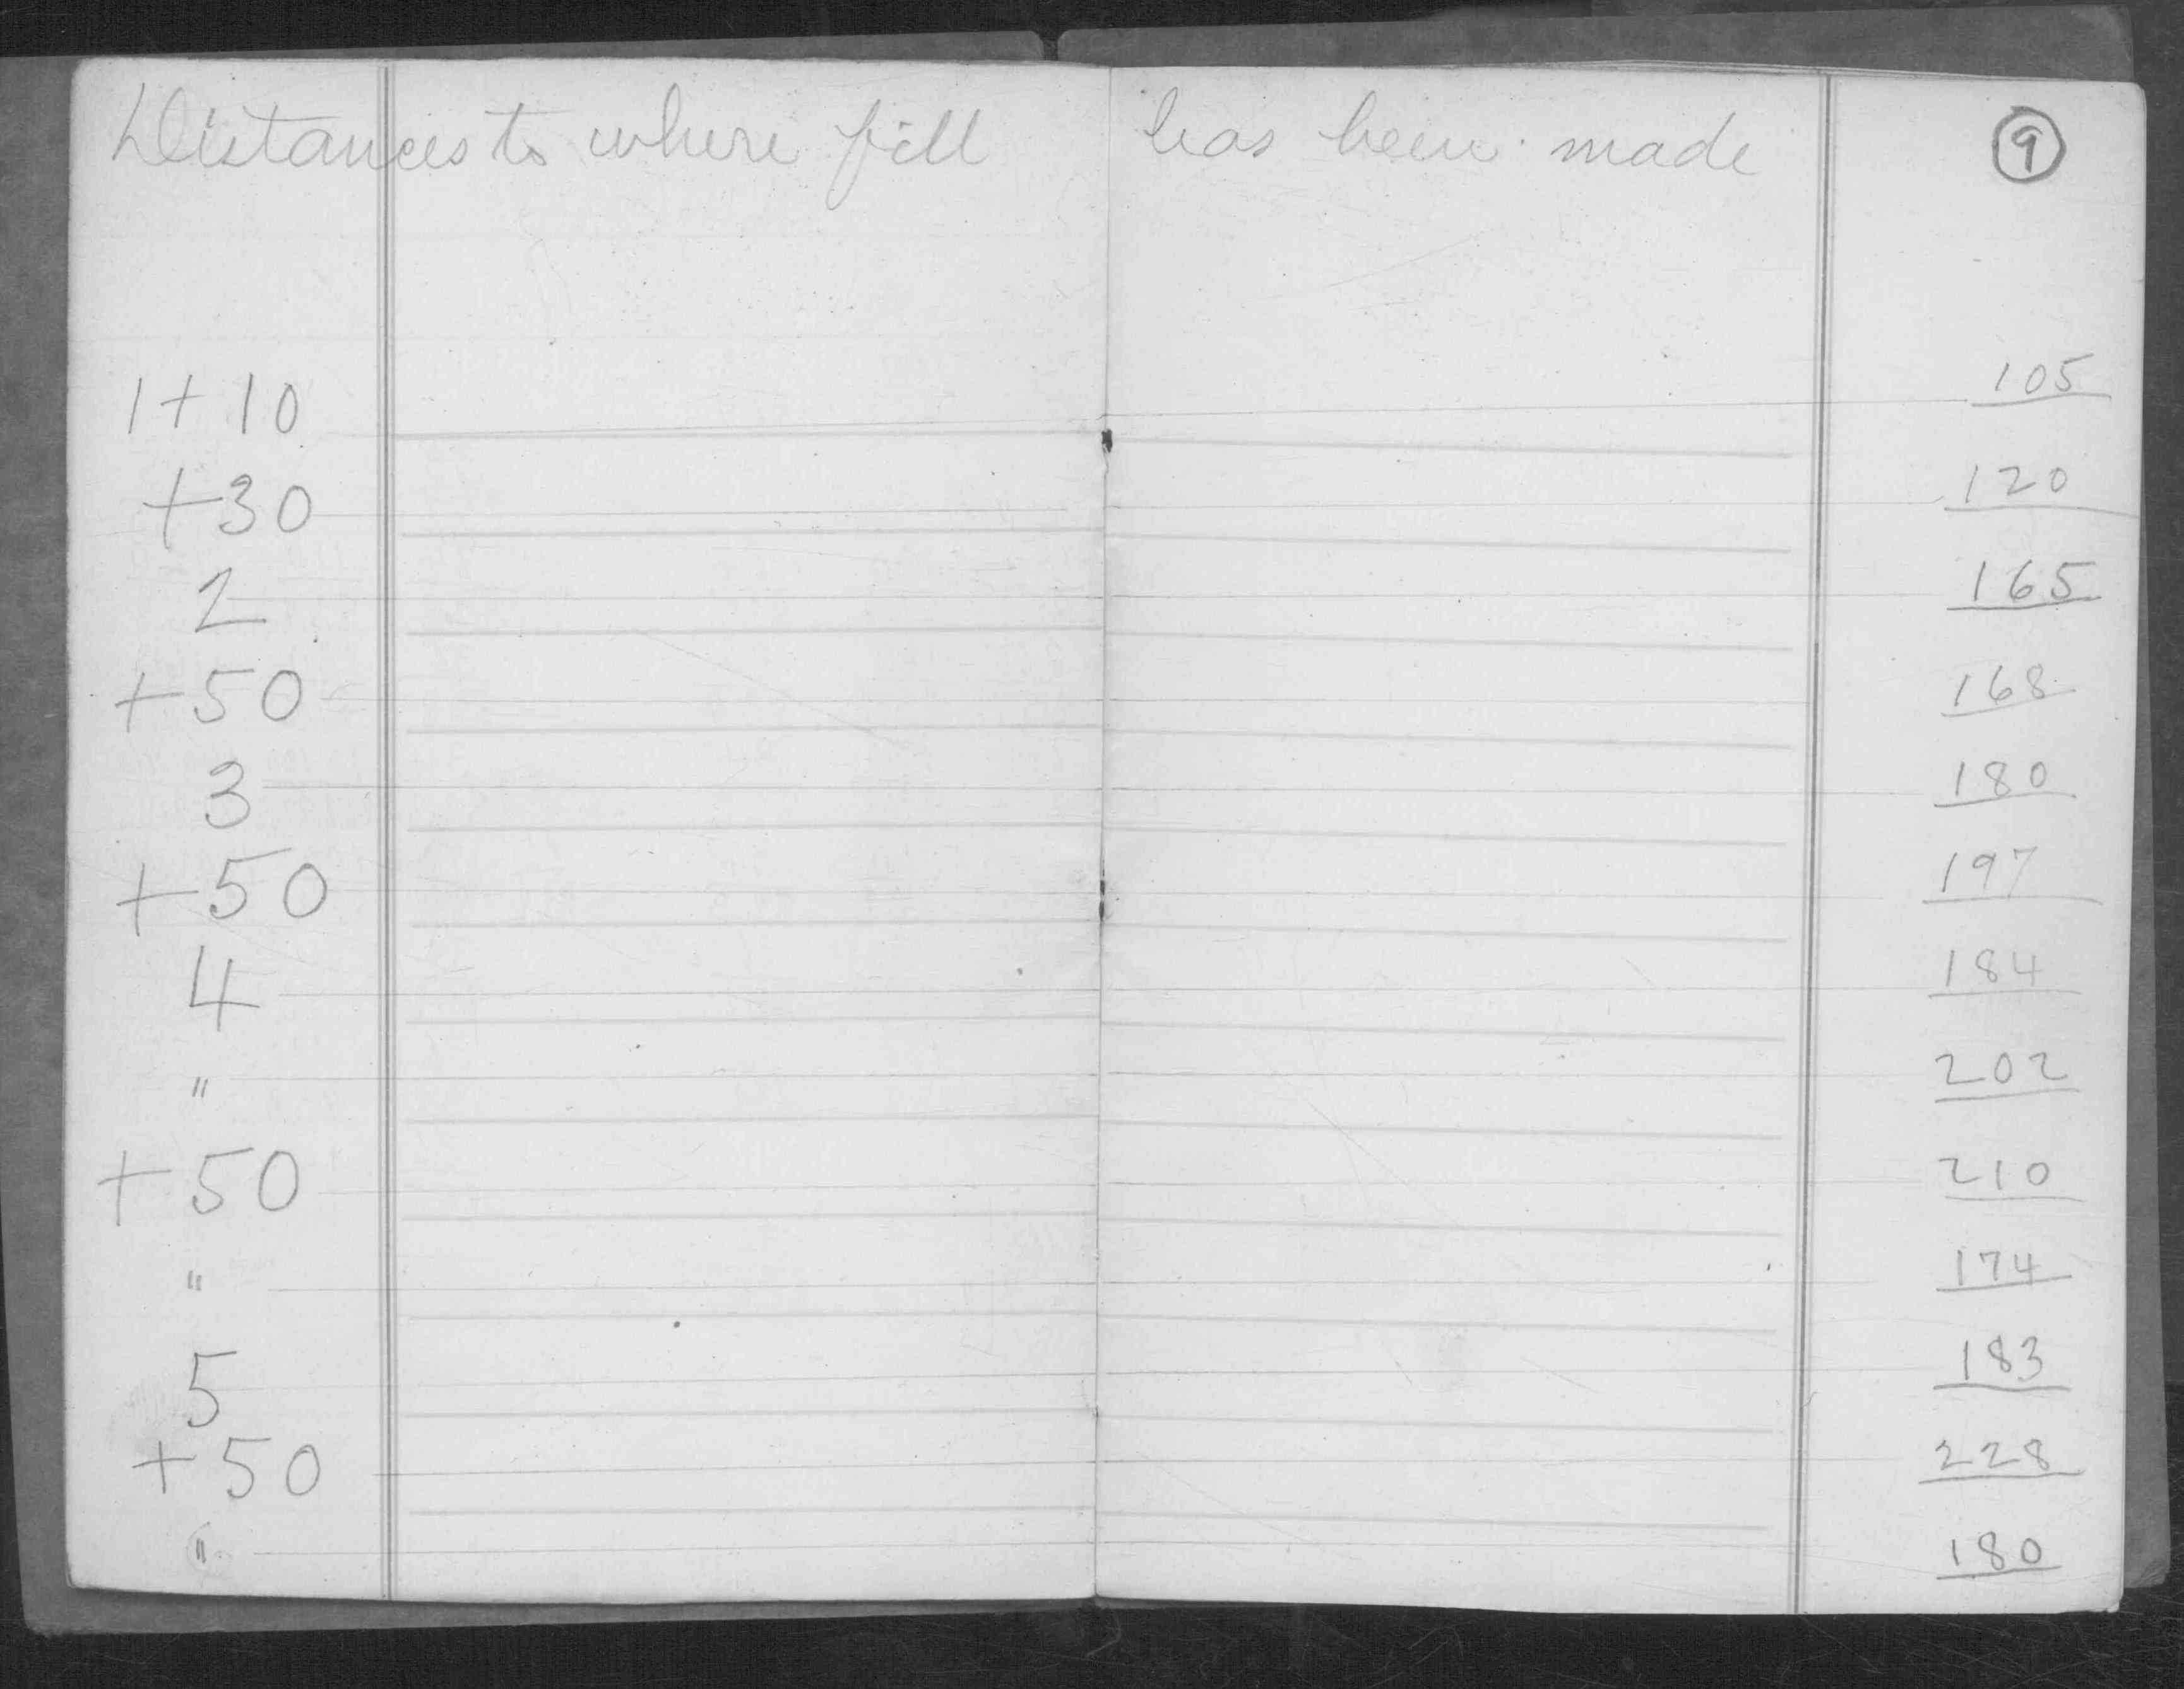 Distances to where fill has been made 9
1+10 105
+30 120
2 165
+50 168
3 180
+50 197
4 184
" 202
+50 210
" 174
5 183
+50 228
" 180